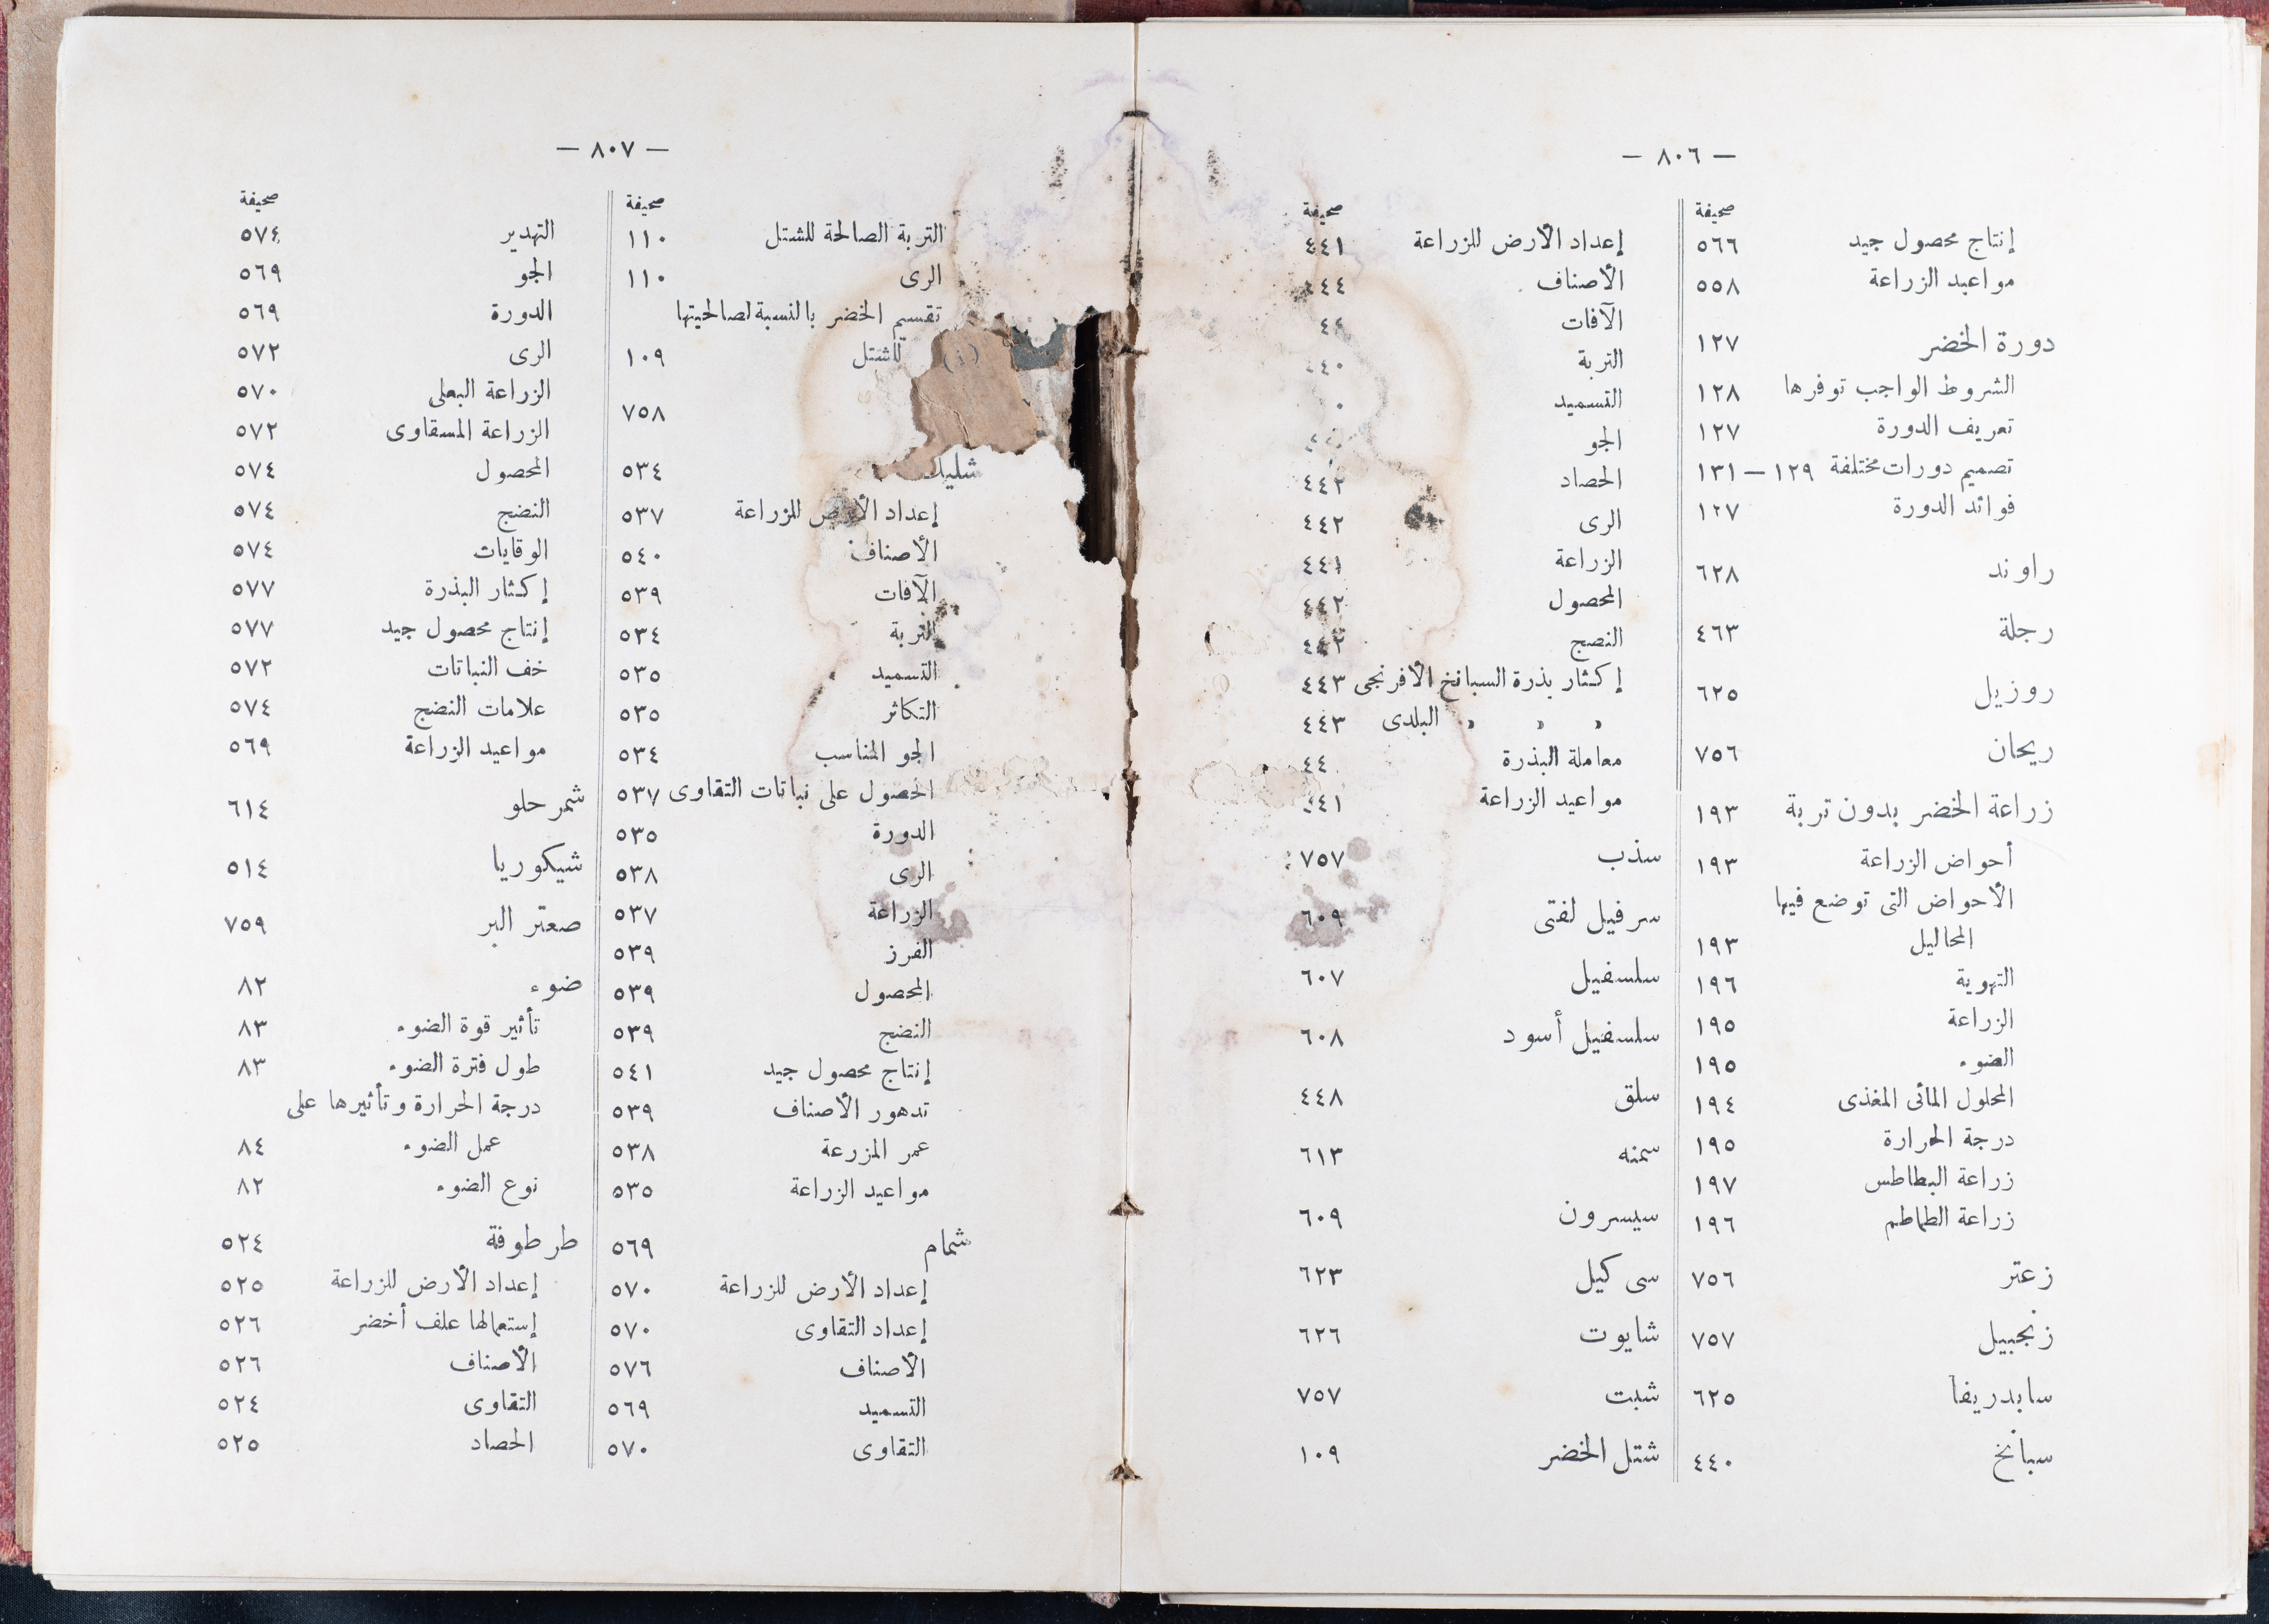 — ٨٠٦ —
صحيفة
إنتاج محصول جيد ٥٦٦
مواعيد الزراعة ٥٥٨
دورة الخضر ١٢٧
الشروط الواجب توفرها ١٢٨
تعريف الدورة ١٢٧
تصميم دورات مختلفة ١٢٩ — ١٣١
فوائد الدورة ١٢٧
راوند ٦٢٨
رجلة ٤٦٣
روزيل ٦٢٥
ريحان ٧٥٦
زراعة الخضر بدون تربة ١٩٣
أحواض الزراعة ١٩٣
الأحواض التى توضع فيها
المحاليل ١٩٣
التهوية ١٩٦
الزراعة ١٩٥
الضوء ١٩٥
المحلول المائى المغذى ١٩٤
درجة الحرارة ١٩٥
زراعة البطاطس ١٩٧
زراعة الطماطم ١٩٦
زعتر ٧٥٦
زنجبيل ٧٥٧
سابدريفا ٦٢٥
سبانخ ٤٤٠
صحيفة
إعداد الأرض للزراعة ٤٤١
الأصناف ٤٤٤
الآفات
التربة
التسميد
الجو
الحصاد ٤٤٢
الرى ٤٤٢
الزراعة ٤٤١
المحصول ٤٤٢
النصج ٤٤٢
إكثار بذرة السبانخ الأفرنجى ٤٤٣
» » » البلدى ٤٤٣
معاملة البذرة
مواعيد الزراعة ٤٤١
سذب ٧٥٧
سرفيل لفتى ٦٠٩
سلسفيل ٦٠٧
سلسفيل أسود ٦٠٨
سلق ٤٤٨
سمنه ٦١٣
سيسرون ٦٠٩
سى كيل ٦٢٣
شايوت ٦٢٦
شبت ٧٥٧
شتل الخضر ١٠٩
— ٨٠٧ —
صحيفة
التربة الصالحة للشتل ١١٠
الرى ١١٠
تقسيم الخضر بالنسبة لصالحيتها
للشتل ١٠٩
٧٥٨
شليك ٥٣٤
إعداد الأرض للزراعة ٥٣٧
الأصناف ٥٤٠
الآفات ٥٣٩
التربة ٥٣٤
التسميد ٥٣٥
التكاثر ٥٣٥
الجو المناسب ٥٣٤
الحصول على نباتات التقاوى ٥٣٧
الدورة ٥٣٥
الرى ٥٣٨
الزراعة ٥٣٧
الفرز ٥٣٩
المحصول ٥٣٩
النضج ٥٣٩
إنتاج محصول جيد ٥٤١
تدهور الأصناف ٥٣٩
عمر المزرعة ٥٣٨
مواعيد الزراعة ٥٣٥
شمام ٥٦٩
إعداد الأرض للزراعة ٥٧٠
إعداد التقاوى ٥٧٠
الأصناف ٥٧٦
التسميد ٥٦٩
التقاوى ٥٧٠
صحيفة
التهدير ٥٧٤
الجو ٥٦٩
الدورة ٥٦٩
الرى ٥٧٢
الزراعة البعلى ٥٧٠
الزراعة المسقاوى ٥٧٢
المحصول ٥٧٤
النضج ٥٧٤
الوقايات ٥٧٤
إكثار البذرة ٥٧٧
إنتاج محصول جيد ٥٧٧
خف النباتات ٥٧٢
علامات النضج ٥٧٤
مواعيد الزراعة ٥٦٩
شمر حلو ٦١٤
شيكوريا ٥١٤
صعتر البر ٧٥٩
ضوء ٨٢
تأثير قوة الضوء ٨٣
طول فترة الضوء ٨٣
درجة الحرارة وتأثيرها على
عمل الضوء ٨٤
نوع الضوء ٨٢
طرطوفة ٥٢٤
إعداد الأرض للزراعة ٥٢٥
إستعمالها علف أخضر ٥٢٦
الأصناف ٥٢٦
التقاوى ٥٢٤
الحصاد ٥٢٥